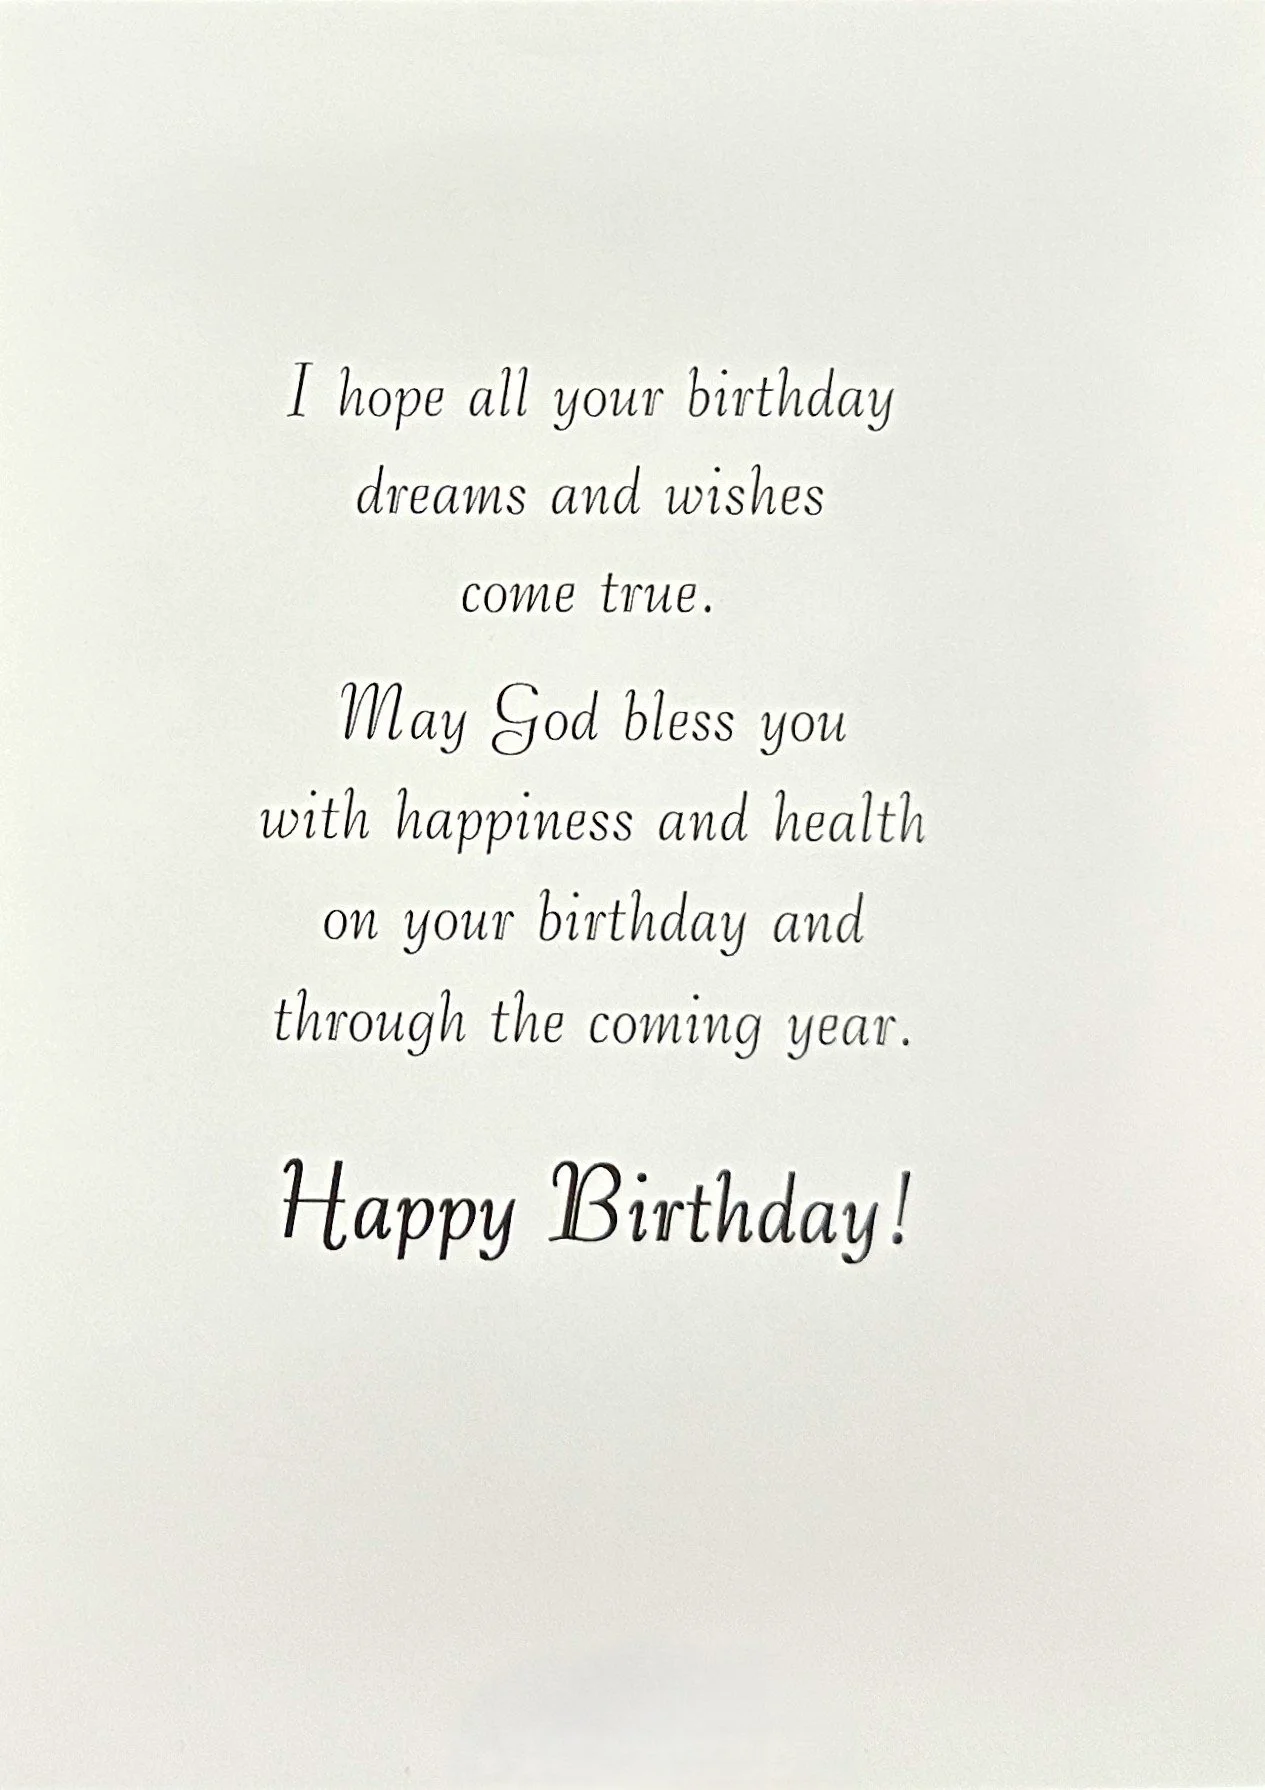 I hope all your birthday
dreams and wishes
come true.
May God bless you
with happiness and health
on your birthday and
through the coming year.
Happy Birthday!